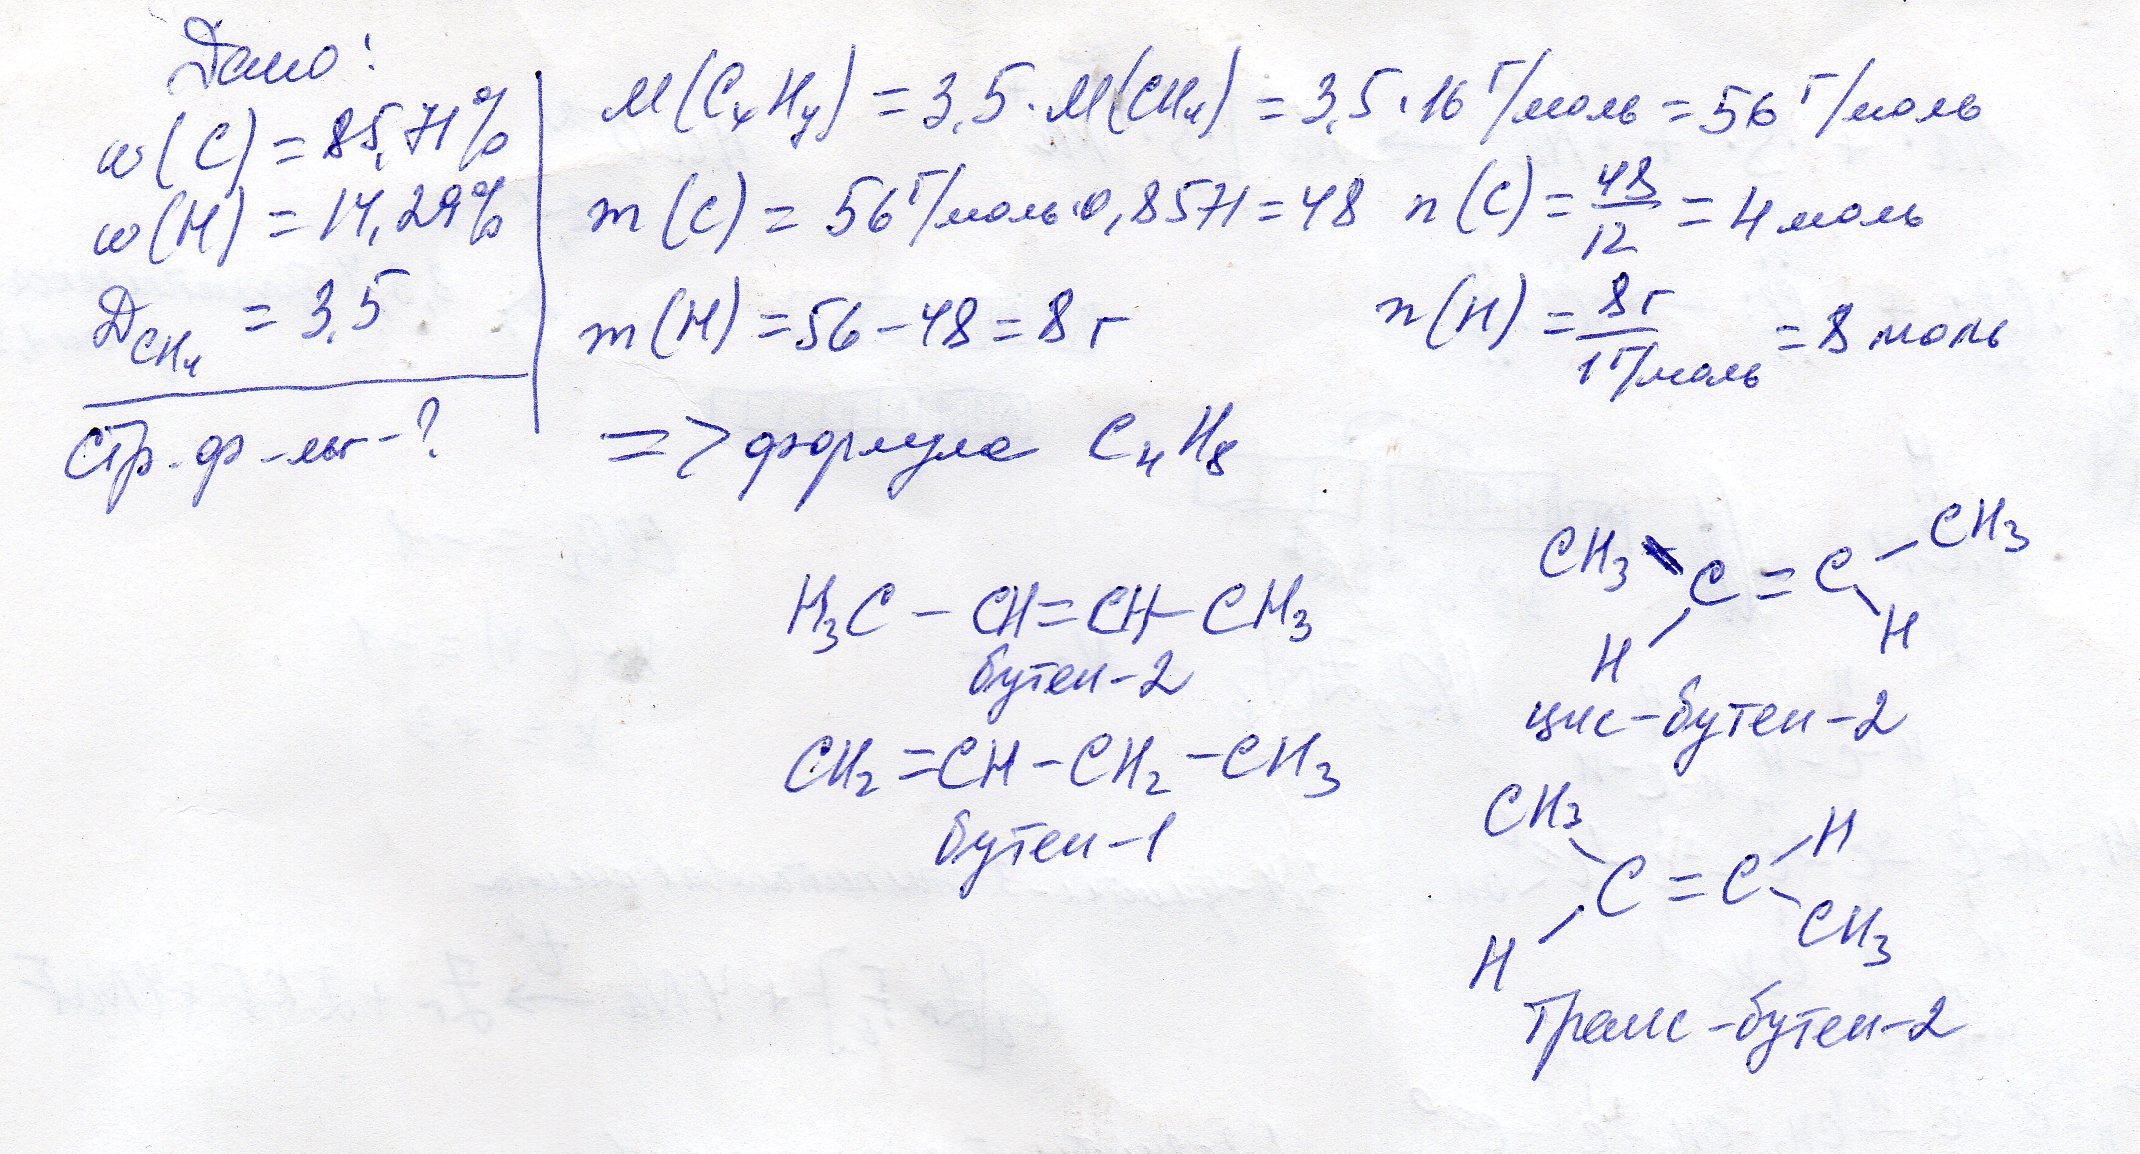 Дано:
w(C) = 85,71%
w(H) = 14,29%
D CH₄ = 3,5
Стр. ф-лы - ?
M(CₓHᵧ) = 3,5 · M(CH₄) = 3,5 · 16 г/моль = 56 г/моль
m(C) = 56 г/моль · 0,8571 = 48 n(C) = 48/12 = 4 моль
m(H) = 56 - 48 = 8 г n(H) = 8г/1г/моль = 8 моль
=> формула C₄H₈
H₃C - CH = CH - CH₃
бутен-2
CH₂ = CH - CH₂ - CH₃
бутен-1
CH₃ CH₃
C = C
H H
цис-бутен-2
CH₃ H
C = C
H CH₃
транс-бутен-2